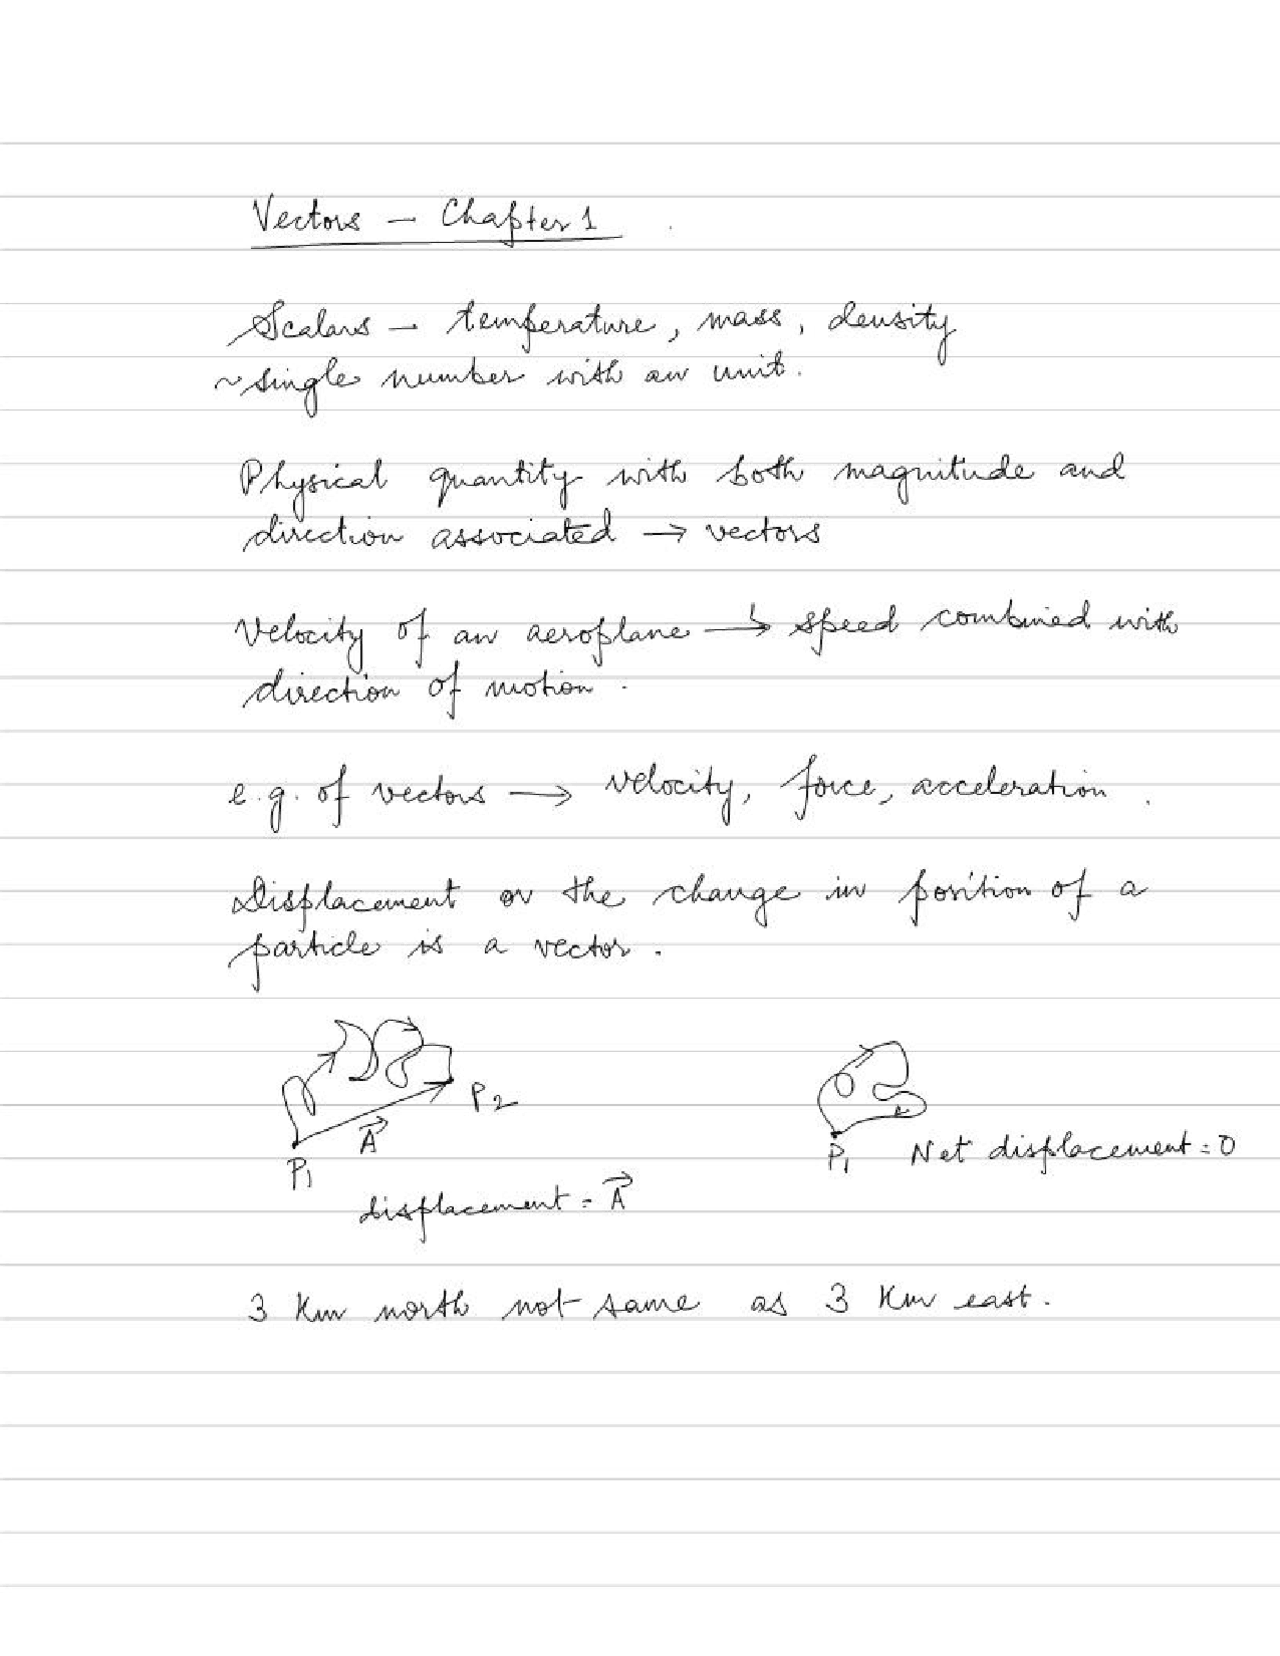 Vectors – Chapter 1
Scalars – temperature, mass, density
~ single number with an unit.
Physical quantity with both magnitude and
direction associated → vectors
Velocity of an aeroplane → speed combined with
direction of motion.
e.g. of vectors → velocity, force, acceleration.
Displacement or the change in position of a
particle is a vector.
P2
A⃗
P1
P1 Net displacement = 0
displacement = A⃗
3 Km north not same as 3 Km east.